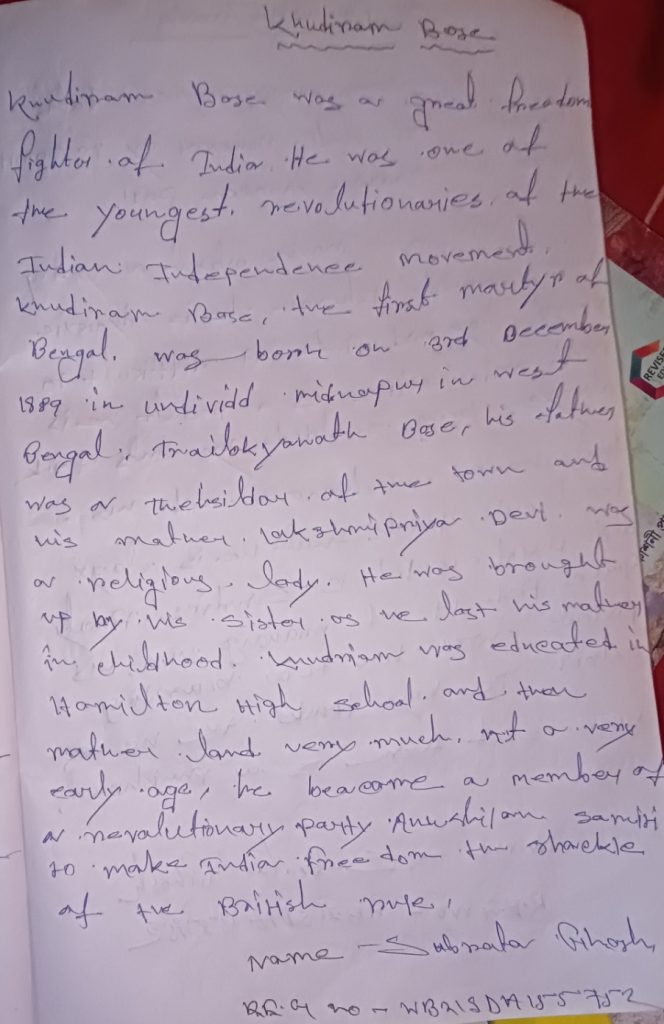 Khudiram Bose
Khudiram Bose was a great freedom
fighter of India. He was one of
the youngest. revolutionaries of the
Indian Independence movement.
Khudiram Bose, the first martyr of
Bengal. was born on 3rd December
1889 in undividd midnapur in west
Bengal. Trailokyanath Bose, his father
was a of the town and
his mather. Lakshmipriya Devi. was
a religious lady. He was brought
up by his sister as he last his mather
in childhood. was educated in
Hamilton High school. and then
mather land very much. At a very
early age, he beacame a member of
a revalutionary party Anushilan samiti
to make India free dom the shackle
of the British rule.
Name - Subrata Ghosh,
no - WB21SDA155752
REVISE